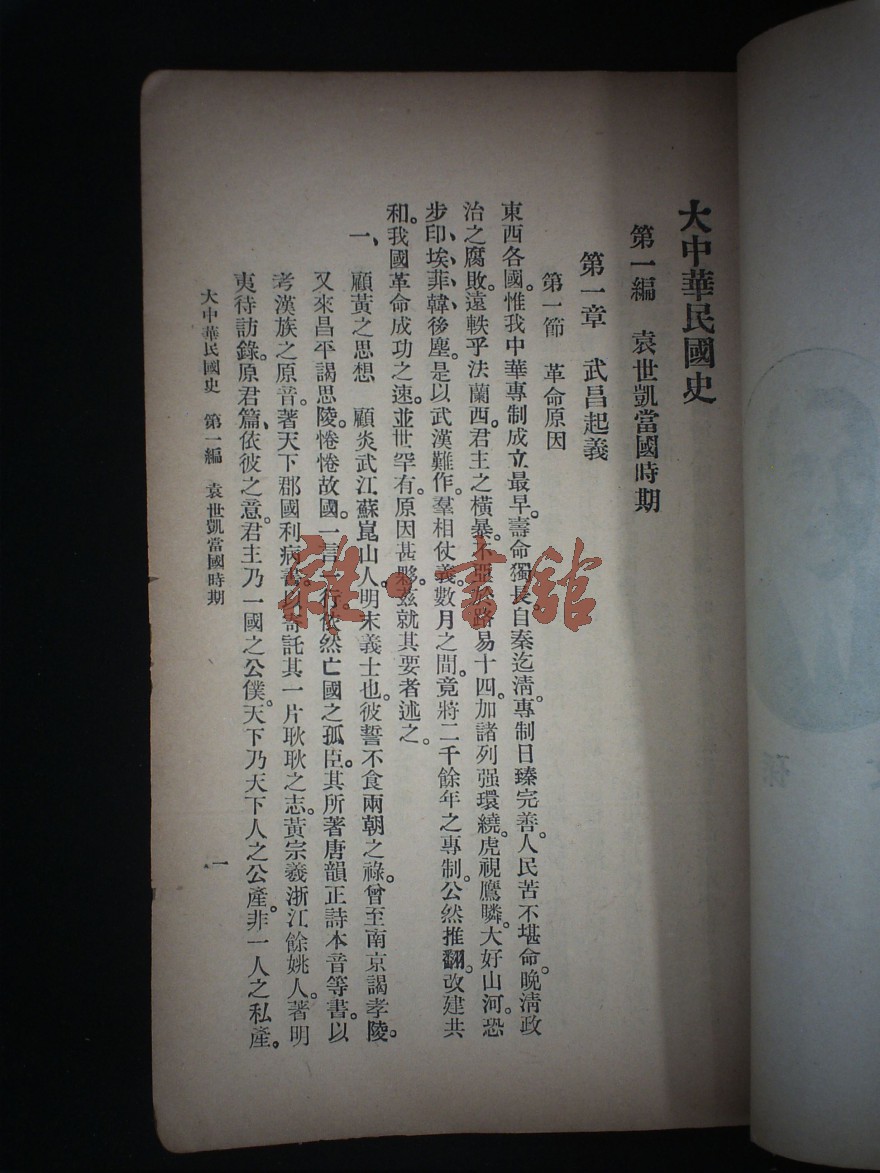 大中華民國史
第一編　袁世凱當國時期
第一章　武昌起義
第一節　革命原因
東西各國。惟我中華專制成立最早。壽命獨長。自秦迄清。專制日臻完善。人民苦不堪命。晚清政
治之腐敗。遠軼乎法蘭西。君主之橫暴。不亞於路易十四。加諸列强環繞。虎視鷹瞵。大好山河。恐
步印、埃、菲、韓後塵。是以武漢難作。羣相仗義。數月之間。竟將二千餘年之專制。公然推翻。改建共
和。我國革命成功之速。並世罕有。原因甚夥。茲就其要者述之。
一、　顧黃之思想　顧炎武江蘇崑山人。明末義士也。彼誓不食兩朝之祿。曾至南京謁孝陵。
又來昌平謁思陵。惓惓故國。一言一行。依然亡國之孤臣。其所著唐韻正詩本音等書。以
考漢族之原音。著天下郡國利病書。以寄託其一片耿耿之志。黃宗羲浙江餘姚人。著明
夷待訪錄。原君篇、依彼之意。君主乃一國之公僕。天下乃天下人之公產。非一人之私產。
大中華民國史　第一編　袁世凱當國時期
一
雜·書館